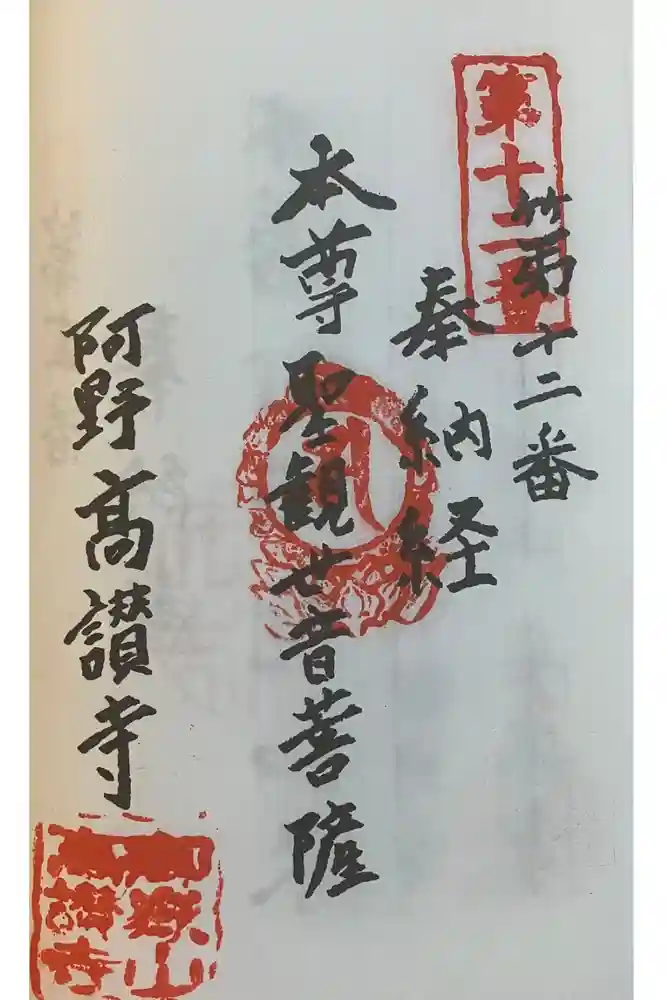 第十二番
第十二番
奉納経
本尊聖観世音菩薩
阿野高讃寺
御嶽山
高讃寺